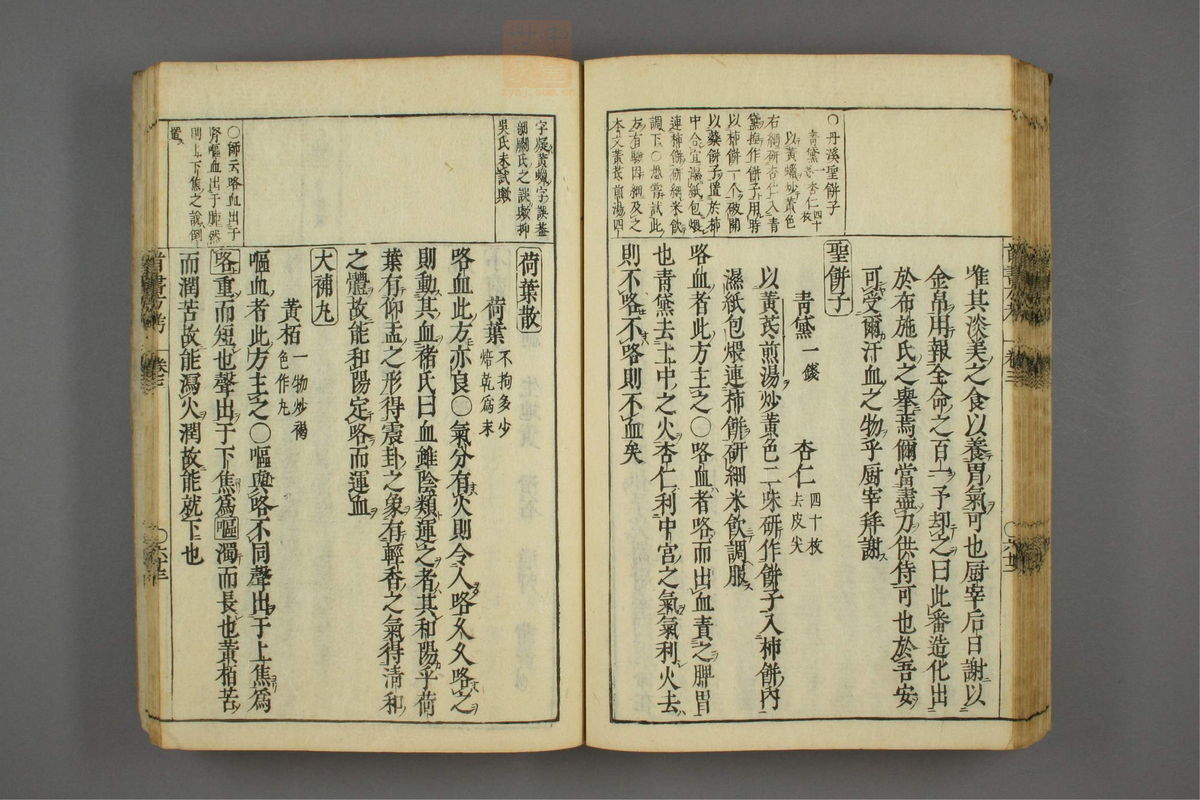 〇丹溪聖餠子
青黛一錢杏仁四十枚
以黃蠟炒黃色
右細研杏仁入青
黛捏作餠子用時
以柿餠一个破開
以藥餠子置於柿
中合宜濕紙包煨
連柿餠研細米飲
調下〇愚嘗試此
方有驗因細及之
本文黃芪煎湯四
唯其淡美之食以養胃氣可也厨宰后日謝以
金帛出報全命之百一予却之曰此番造化出
於布施氏之舉焉爾當盡力供侍可也於吾安
可受爾汗血之物乎厨宰拜謝
聖餠子
青黛一錢 杏仁四十枚去皮尖
以黃芪煎湯炒黃色二味研作餠子入柿餠內
濕紙包煨連柿餠研細米飲調服
咯血者此方主之〇咯血者咯而出血責之脾胃
也青黛去土中之火杏仁利中宮之氣氣利火去
則不咯不咯則不血矣
字疑黃蠟字誤蓋
細關氏之誤歟抑
吳氏未試歟
〇師云咯血出于
腎嘔血出于脾然
則上下焦之說倒
置
荷葉散
荷葉不拘多少焙乾爲末
咯血此方亦良〇氣分有火則令人咯久久咯之
則動其血褚氏曰血雖陰類運之者其和陽乎荷
葉有仰盂之形得震卦之象有輕香之氣得清和
之體故能和陽定咯而運血
大補丸
黃栢一物炒褐色作丸
嘔血者此方主之〇嘔與咯不同聲出于上焦爲
咯重而短也聲出于下焦爲嘔濁而長也黃栢苦
而潤苦故能瀉火潤故能就下也